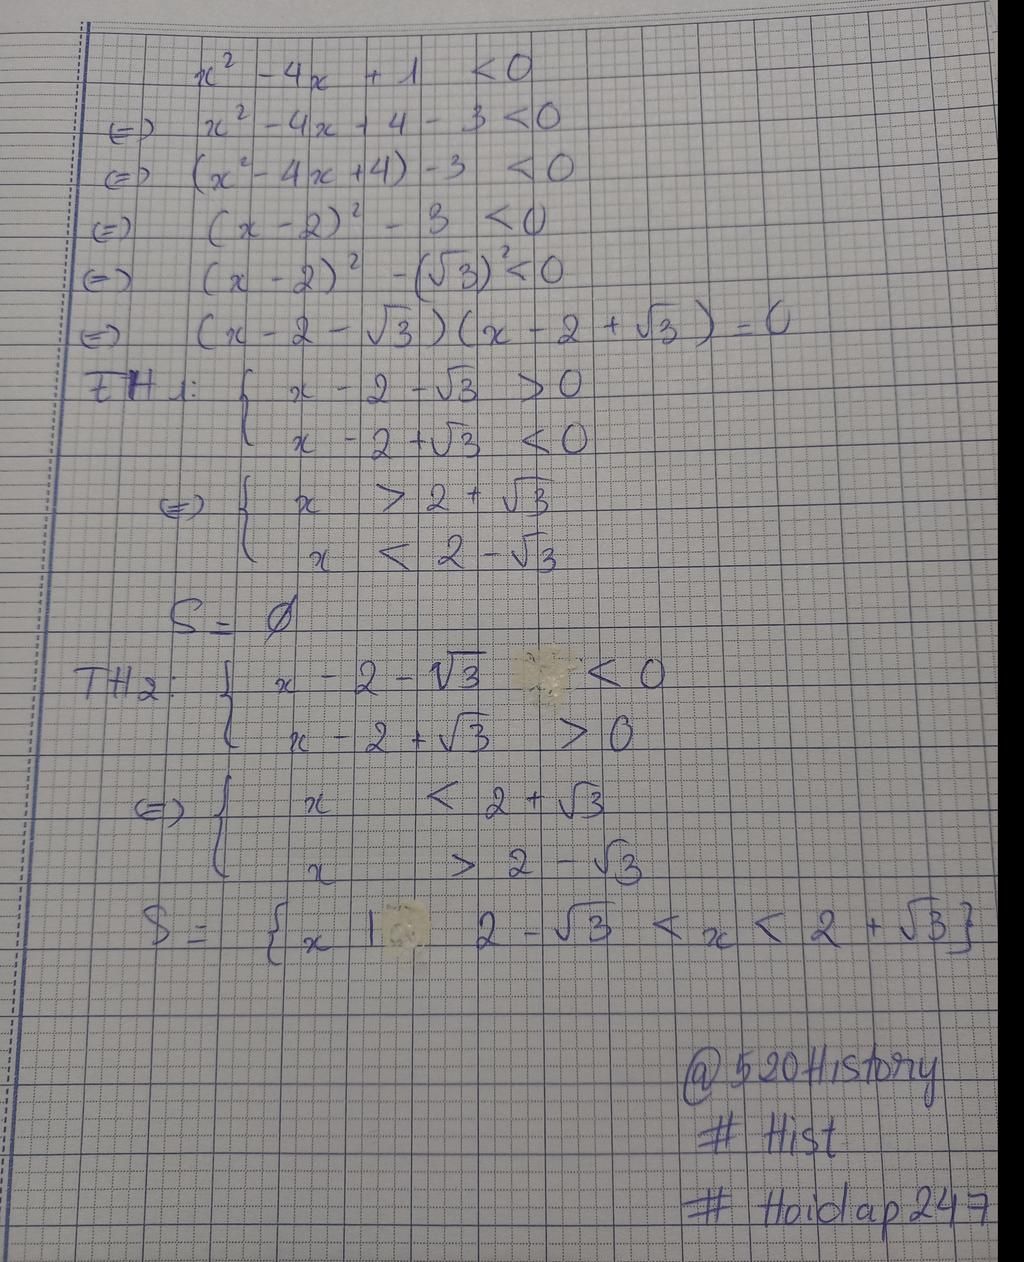 x² - 4x + 1 < 0
<=> x² - 4x + 4 - 3 < 0
<=> (x² - 4x + 4) - 3 < 0
<=> (x - 2)² - 3 < 0
<=> (x - 2)² - (√3)² < 0
<=> (x - 2 - √3)(x - 2 + √3) = 0
TH1: { x - 2 - √3 > 0
x - 2 + √3 < 0
<=> { x > 2 + √3
x < 2 - √3
S = Ø
TH2: { x - 2 - √3 < 0
x - 2 + √3 > 0
<=> { x < 2 + √3
x > 2 - √3
S = {x | 2 - √3 < x < 2 + √3}
@520History
# Hist
# Hoidap247